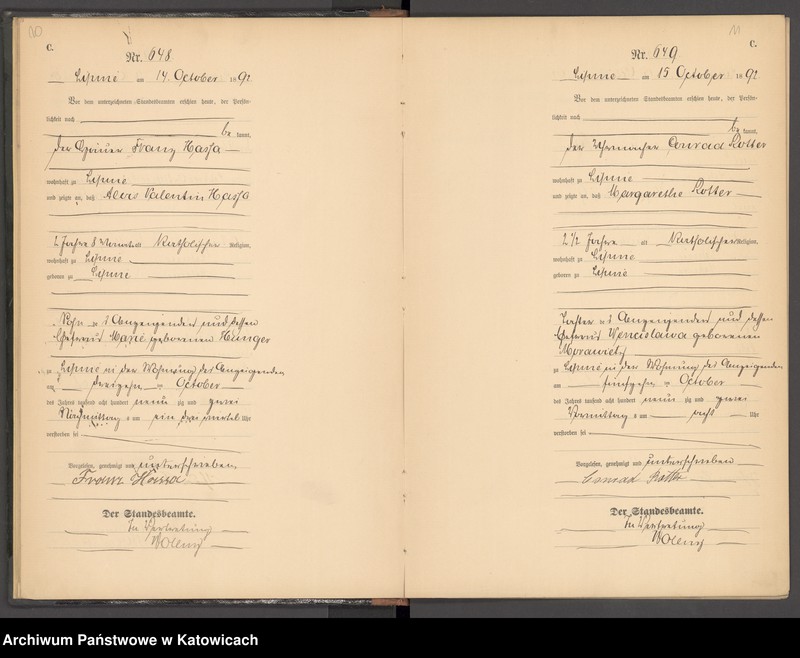 C.
Nr. 648.
am 14. October 1892
Vor dem unterzeichneten Standesbeamten erschien heute, der Persön-
lichkeit nach
be kannt,
der Franz Hassa
wohnhaft zu
und zeigte an, daß Alois Valentin Hassa
2 Jahre 8 Monate alt Katholischer Religion,
wohnhaft zu
geboren zu
Sohn des Anzeigenden und dessen
Ehefrau Marie geborenen Hunger
zu in der Wohnung des Anzeigenden
am dreizehn ten October
des Jahres tausend acht hundert neun zig und zwei
Nachmittag s um ein drei viertel Uhr
verstorben sei
Vorgelesen, genehmigt und unterschrieben
Franz Hassa
Der Standesbeamte.
In Vertretung
C.
Nr. 649
am 15 October 1892
Vor dem unterzeichneten Standesbeamten erschien heute, der Persön-
lichkeit nach
be kannt,
der Uhrmacher Conrad Kotter
wohnhaft zu
und zeigte an, daß Margarethe Kotter
2 1/2 Jahre alt Katholischer Religion,
wohnhaft zu
geboren zu
Tochter des Anzeigenden und dessen
Ehefrau geborenen
zu in der Wohnung des Anzeigenden
am fünfzehn ten October
des Jahres tausend acht hundert neun zig und zwei
Vormittag s um acht Uhr
verstorben sei
Vorgelesen, genehmigt und unterschrieben
Conrad Kotter
Der Standesbeamte.
In Vertretung
Archiwum Państwowe w Katowicach